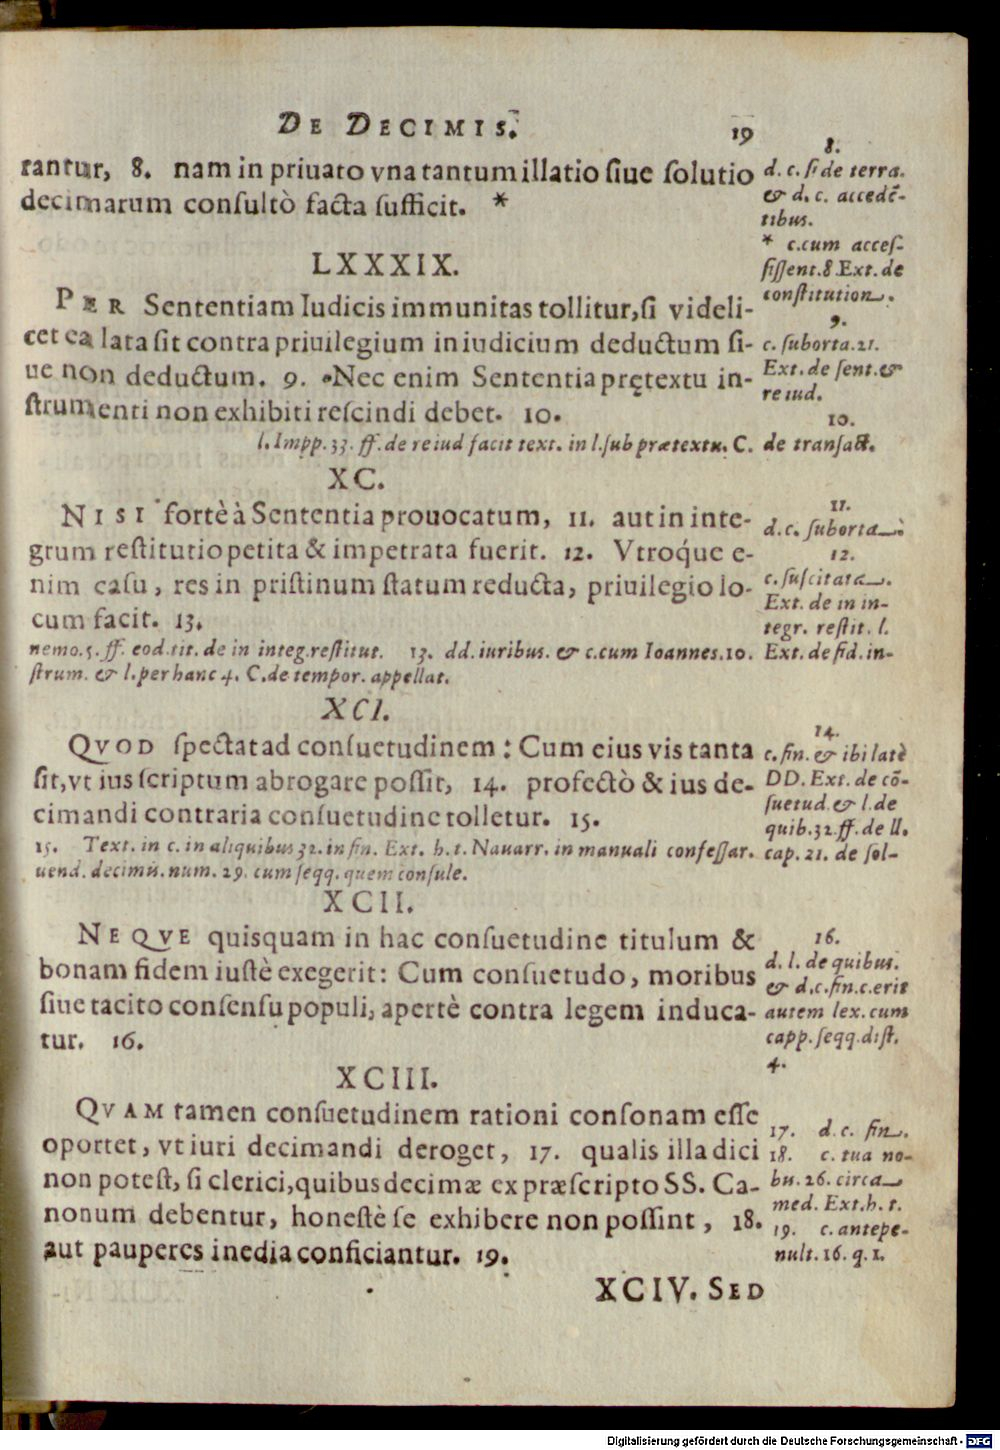 DE DECIMIS. 19
rantur, 8. nam in priuato vna tantum illatio siue solutio
decimarum consultò facta sufficit. *
8.
d. c. si de terra.
& d. c. accedẽ-
tibus.
* c. cum acces-
sissent. 8. Ext. de
constitution.
LXXXIX.
PER Sententiam Iudicis immunitas tollitur, si videli-
cet ea lata sit contra priuilegium in iudicium deductum si-
ue non deductum. 9. Nec enim Sententia prętextu in-
strumenti non exhibiti rescindi debet. 10.
9.
c. suborta. 21.
Ext. de sent. &
re iud.
10.
l. Impp. 33. ff. de re iud facit text. in l. sub prætextu. C. de transact.
XC.
NISI fortè à Sententia prouocatum, 11. aut in inte-
grum restitutio petita & impetrata fuerit. 12. Vtroq́ue e-
nim casu, res in pristinum statum reducta, priuilegio lo-
cum facit. 13.
11.
d. c. suborta.
12.
c. suscitata.
Ext. de in in-
tegr. restit. l.
nemo. 5. ff. eod. tit. de in integ. restitut. 13. dd. iuribus. & c. cum Ioannes. 10. Ext. de fid. in-
strum. & l. per hanc 4. C. de tempor. appellat.
XCI.
QVOD spectat ad consuetudinem: Cum eius vis tanta
sit, vt ius scriptum abrogare possit, 14. profectò & ius de-
cimandi contraria consuetudine tolletur. 15.
14.
c. fin. & ibi latè
DD. Ext. de cõ-
suetud. & l. de
quib. 32. ff. de ll.
15. Text. in c. in aliquibus 32. in fin. Ext. h. t. Nauarr. in manuali confessar. cap. 21. de sol-
uend. decimis. num. 29. cum seqq. quem consule.
XCII.
NEQVE quisquam in hac consuetudine titulum &
bonam fidem iustè exegerit: Cum consuetudo, moribus
siue tacito consensu populi, apertè contra legem induca-
tur. 16.
16.
d. l. de quibus.
& d. c. fin. c. erit
autem lex. cum
capp. seqq. dist.
4.
XCIII.
QVAM tamen consuetudinem rationi consonam esse
oportet, vt iuri decimandi deroget, 17. qualis illa dici
non potest, si clerici, quibus decimæ ex præscripto SS. Ca-
nonum debentur, honestè se exhibere non possint, 18.
aut pauperes inedia conficiantur. 19.
17. d. c. fin.
18. c. tua no-
bu. 26. circa
med. Ext. h. t.
19. c. antepe-
nult. 16. q. 1.
XCIV. SED
Digitalisierung gefördert durch die Deutsche Forschungsgemeinschaft - DFG